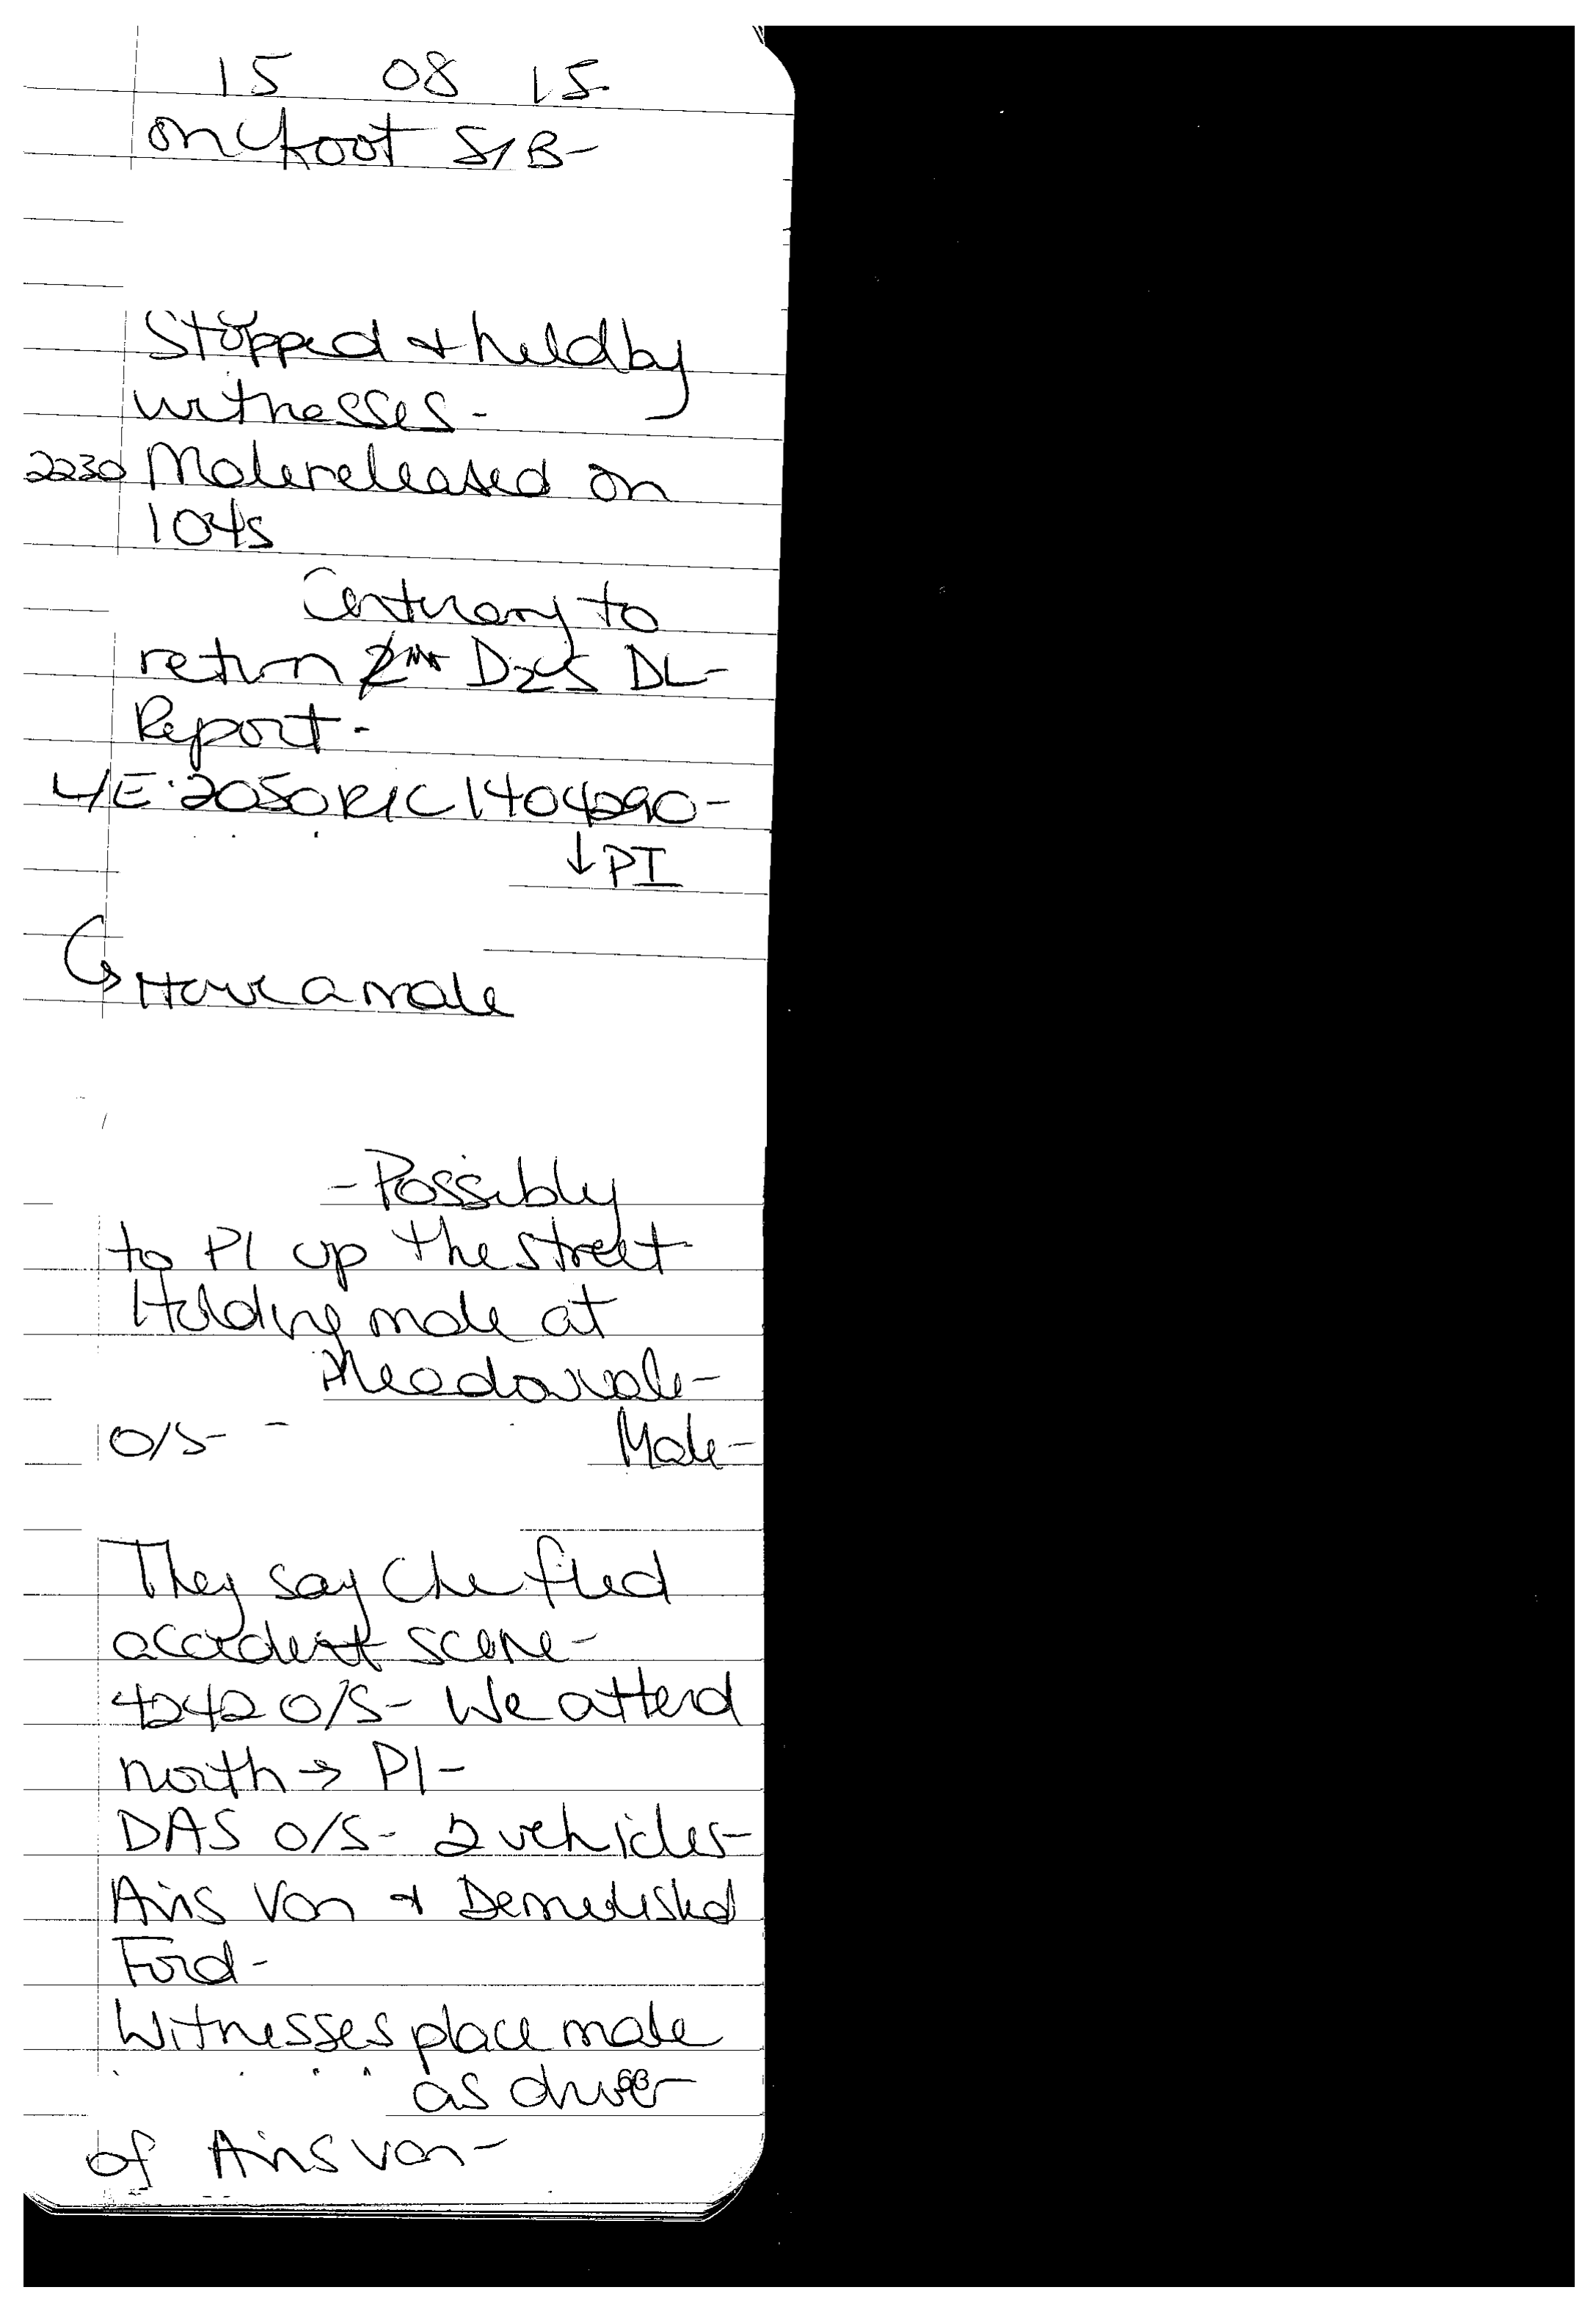 15 08 15
on foot S/B-
Stopped & held by
witnesses-
2230 Male released on
104s
Contrary to
return DL-
Report-
L/E 2050 R/C 1404290-
↓ PI
↳ Have a male
- Possibly
to PI up the street
Holding male at
Meadowvale-
O/S- - Male-
They say he fled
accident scene-
4242 O/S- We attend
north → PI-
DAS O/S- 2 vehicles-
Avis Van & Demolished
Ford-
Witnesses place male
as driver
63
of Avis van-